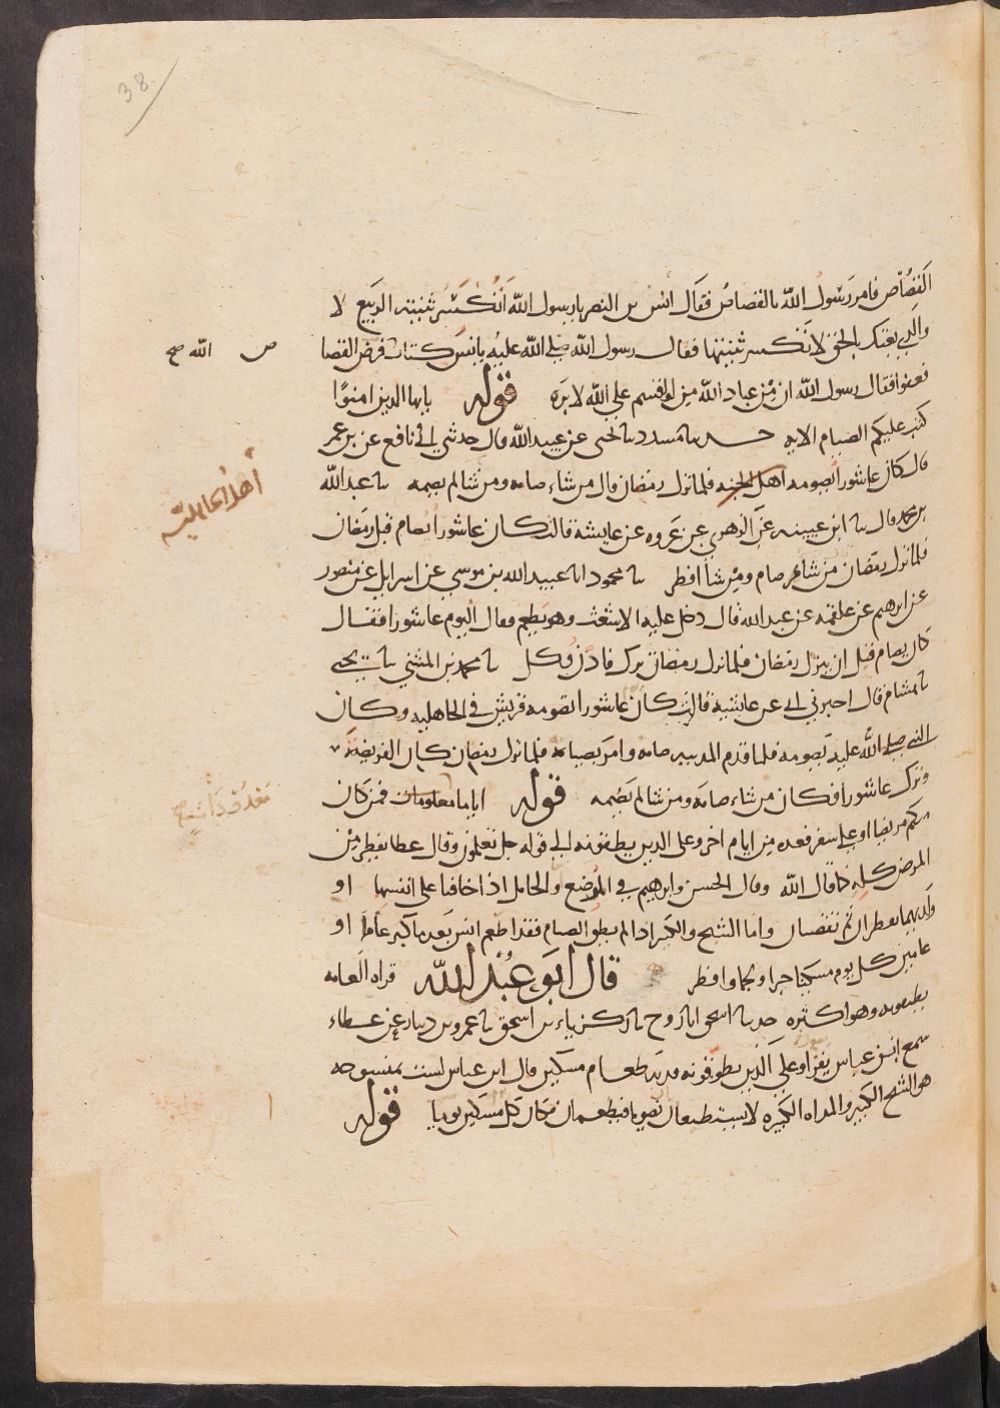 38
القصاص فامر رسول الله بالقصاص فقال انس بن النضر يا رسول الله أتُكسَر ثنية الربيع لا
والذي بعثك بالحق لا تكسر ثنيتها فقال رسول الله صلى الله عليه يا انس كتاب فرض القصا
ص الله صح
فعفوا فقال رسول الله ان مِن عباد الله من لو اقسم علي الله لابره قوله يا ايها الذين امنوا
كتب عليكم الصيام الايه حدثنا مسدد نا يحيى عن عبيد الله قال حدثني نافع عن بن عمر
قال كان عاشورا يصومه اهل الجنه فلما نزل رمضان قال من شاء صامه ومن شا لم يصمه نا عبد الله
اهل الجاهلية
بن محمد قال نا ابن عيينه عن الزهري عن عروه عن عايشه قالت كان عاشورا يصام قبل رمضان
فلما نزل رمضان من شاء صام ومن شا افطر نا محمود انا عبيد الله بن موسي عن اسرايل عن منصور
عن ابرهيم عن علقمه عن عبد الله قال دخل عليه الاشعث وهو يطعم فقال اليوم عاشورا فقال
كان يصام قبل ان ينزل رمضان فلما نزل رمضان ترك فادن فكل نا محمد بن المثني نا يحيى
نا هشام قال اخبرني ابي عن عايشه قالت كان عاشورا تصومه قريش في الجاهليه وكان
النبي صلى الله عليه يصومه فلما قدم المدينه صامه وامر بصيامه فلما نزل رمضان كان الفريضة
وترك عاشورا فكان من شاء صامه ومن شا لم يصمه قوله اياما معلومات فمن كان
معدودات صح
منكم مريضا او علي سفر فعده من ايام اخر وعلى الذين يطيقونه الى قوله جل تعلمون وقال عطا يفطر من
المرض كله كما قال الله وقال الحسن وابرهيم في المرضع والحامل اذا خافتا على انفسهما او
ولديهما يفطران ثم تقضيان واما الشيخ والكبير اذا لم يطق الصيام فقد اطعم انس بعد ما كبر عاما او
عامين كل يوم مسكينا خبزا ولحما وافطر قال ابو عبد الله قراه العامه
يطيقونه وهو اكثره حدثنا اسحق انا روح نا زكريا بن اسحق نا عمرو بن دينار عن عطاء
سمع ابن عباس يقرا وعلي الذين يطوقونه فديه طعام مسكين قال ابن عباس ليست بمنسوخه
هو الشيخ الكبير والمراه الكبيره لا يستطيعان يصوما فيطعمان مكان كل مسكين يوما قوله